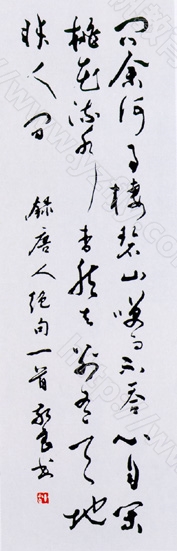 问余何事栖碧山笑而不答心自闲
桃花流水杳然去别有天地
非人间 录唐人绝句一首